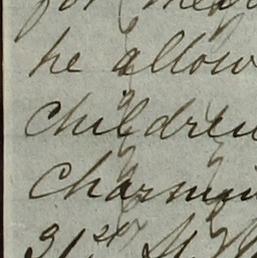 for
he allow
children
charmin
31st